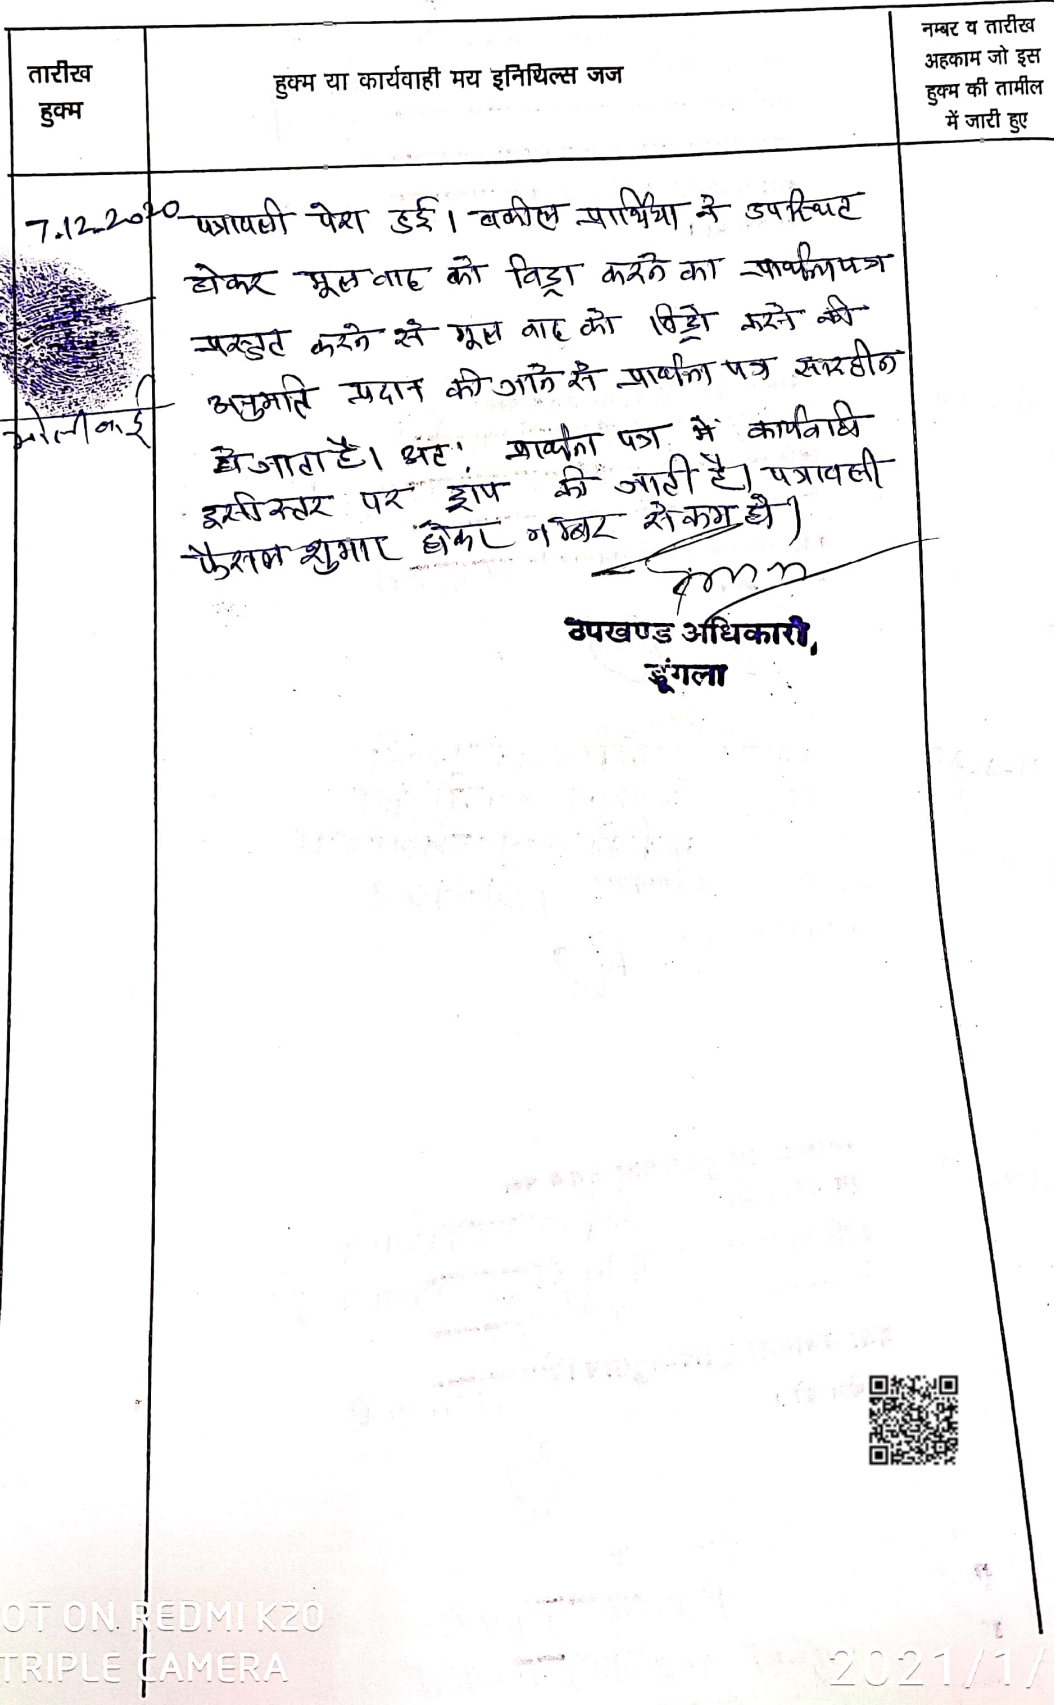 तारीख
हुक्म
हुक्म या कार्यवाही मय इनिथिल्स जज
नम्बर व तारीख
अहकाम जो इस
हुक्म की तामील
में जारी हुए
7.12.2020
पत्रावली पेश हुई। वकील प्रार्थिया ने उपस्थित
होकर मूल वाद को विड्रा करने का प्रार्थना पत्र
प्रस्तुत करने से मूल वाद को विड्रो करने की
अनुमति प्रदान की जाने से प्रार्थना पत्र सारहीन
हो जाता है। अतः प्रार्थना पत्र में कार्यवाही
इसी स्तर पर ड्राप की जाती है। पत्रावली
फैसल शुमार होकर नम्बर से कम हो।
उपखण्ड अधिकारी,
डूंगला
OT ON REDMI K20
TRIPLE CAMERA
2021/1/